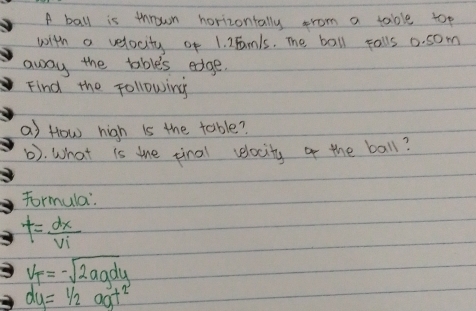 A ball is thrown horizontally from a table top
with a velocity of 1.25m/s. The ball falls 0.50m
away the table's edge.
Find the following
a) How high is the table?
b). What is the final velocity of the ball?
Formula:
t = dx
vi
Vf = -√2agdy
dy = 1/2 agt²